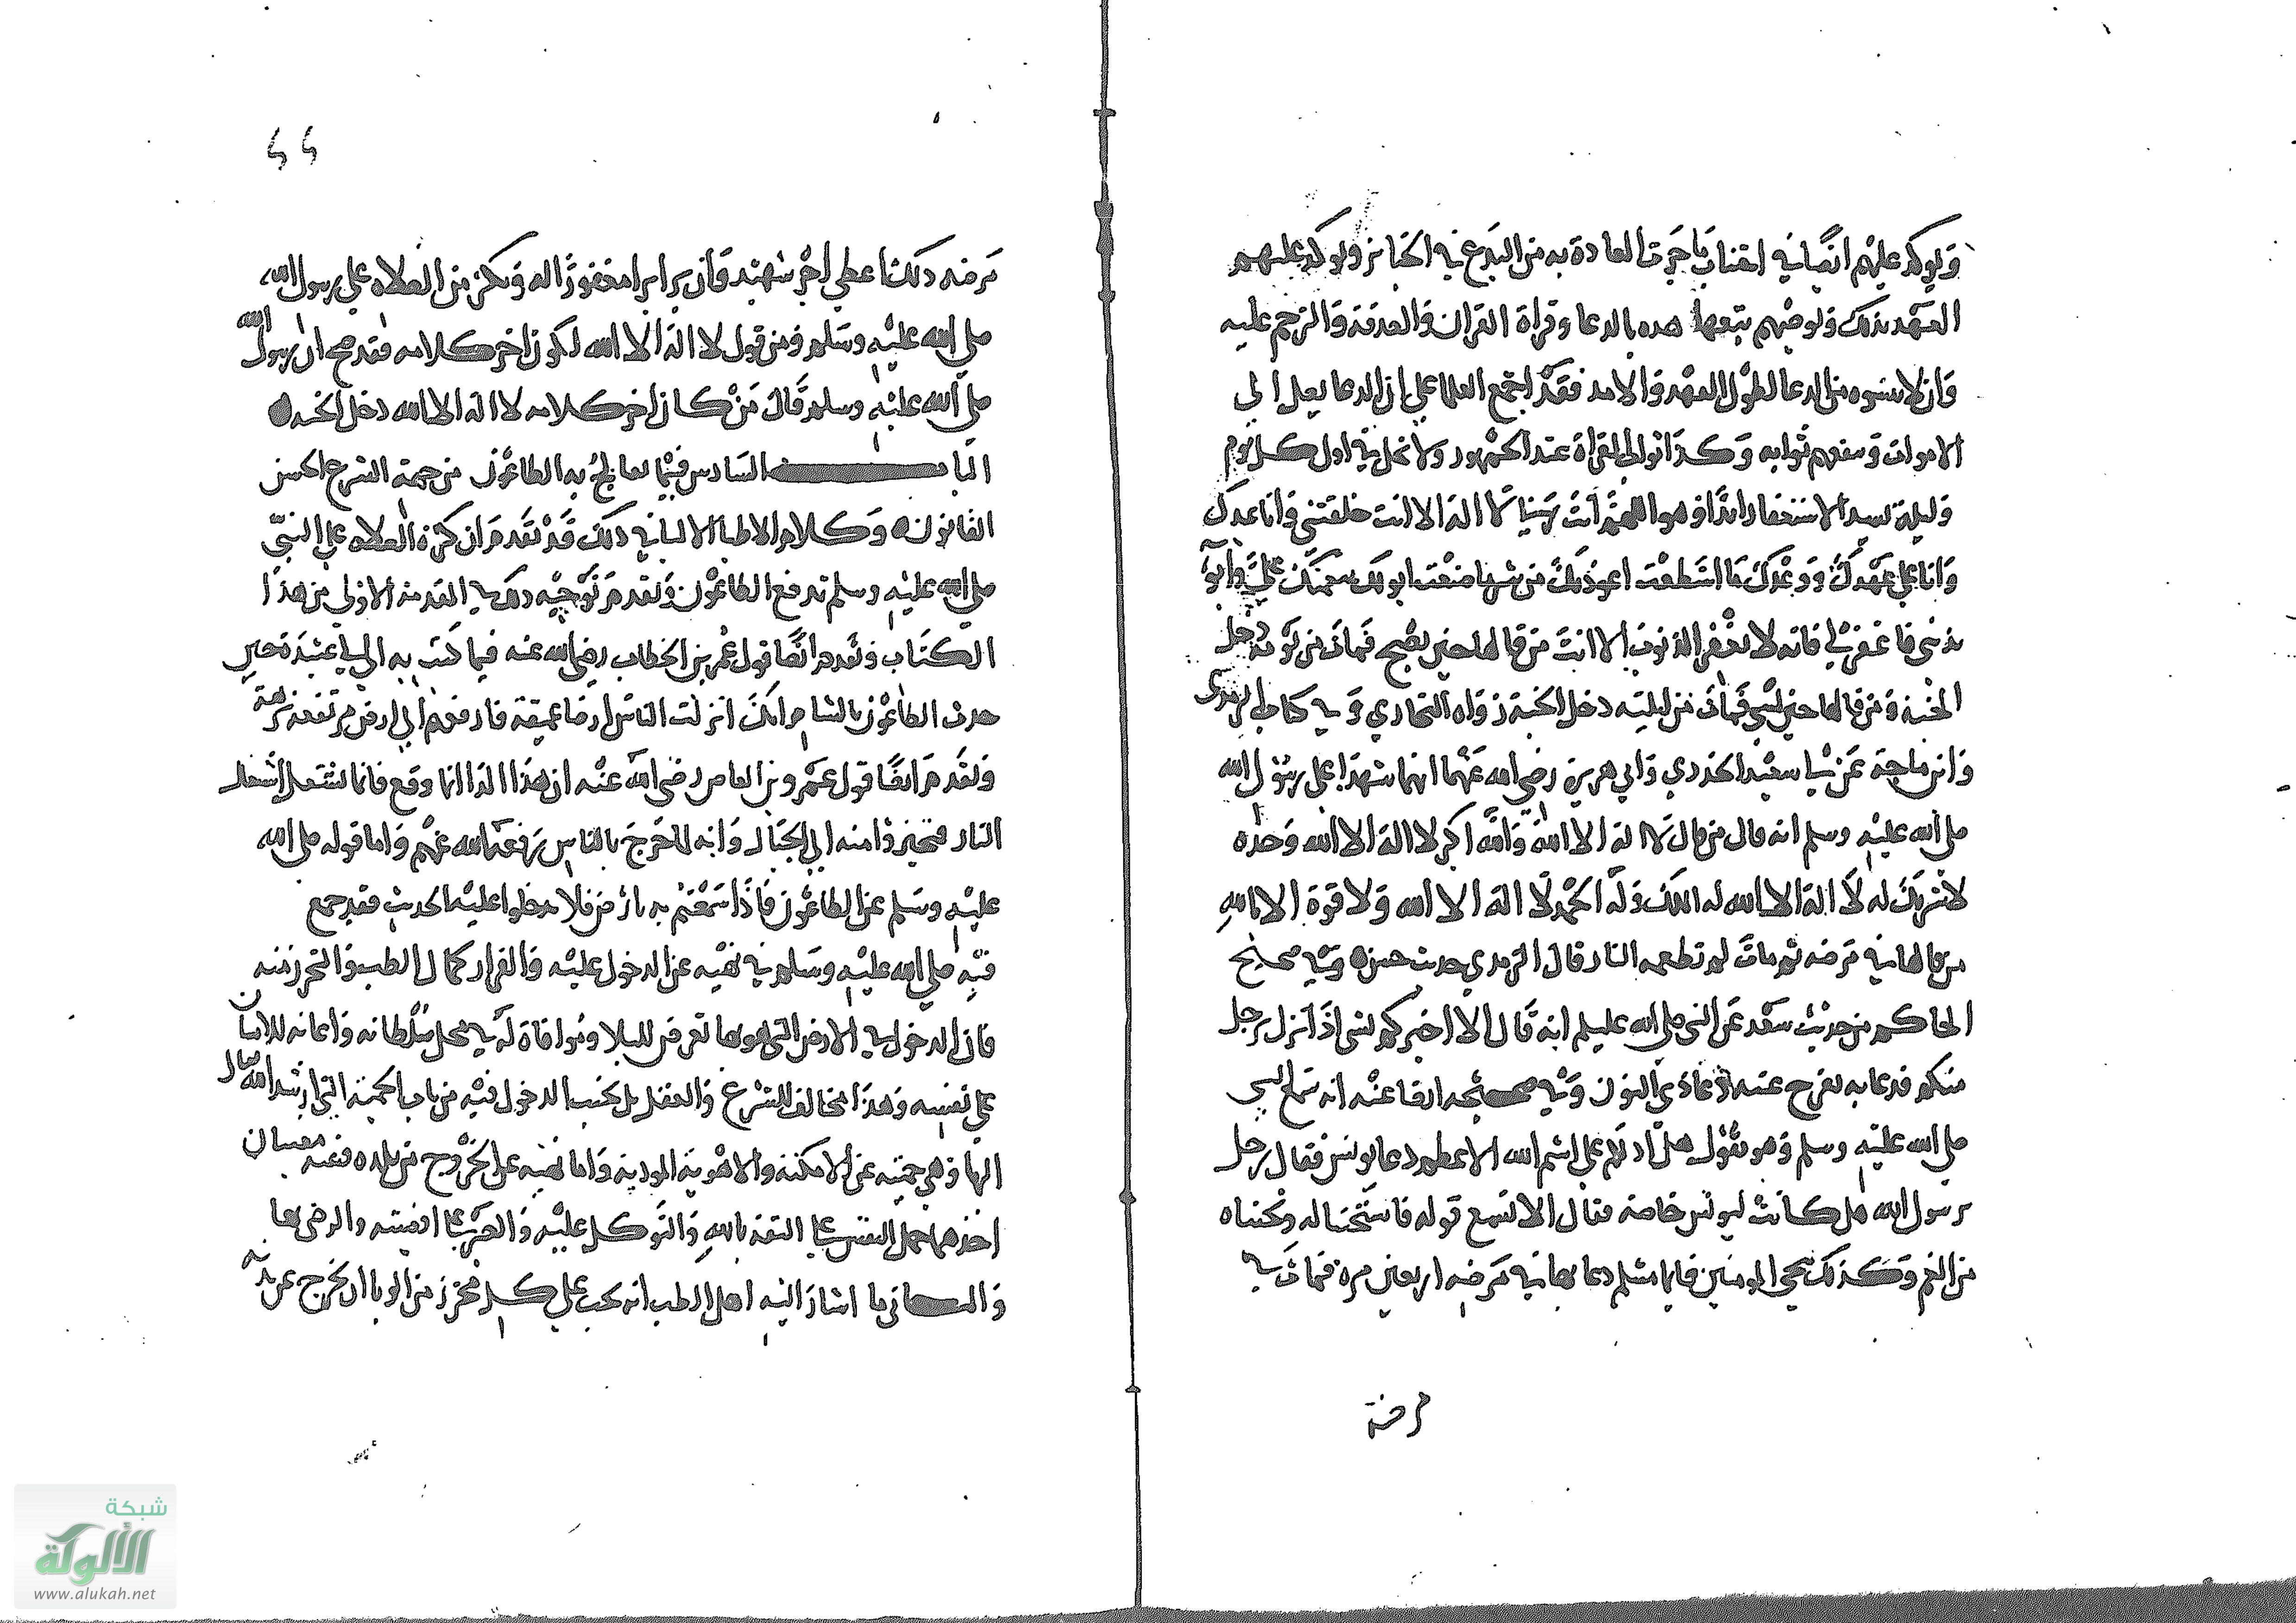 ويوكد عليهم ايضا في اجتناب ما جرت العادة به من البدع في الجنايز ويوكد عليهم
العهد بذلك ويوصيهم بتعهده بالدعا وقراة القران والصدقة والترحم عليه
وان لا ينسوه من الدعا لطول العهد والامد فقد اجمع العلما على ان الدعا يصل الى
الاموات وينفعهم ثوابه وكذا ثواب القراة عند الجمهور ولا يخل في اول كل يوم
وليلة بسيد الاستغفار ابدا وهو اللهم انت ربي لا اله الا انت خلقتني وانا عبدك
وانا على عهدك ووعدك ما استطعت اعوذ بك من شر ما صنعت ابو لك بنعمتك علي وابو
بذنبي فاغفر لي فانه لا يغفر الذنوب الا انت من قالها حين يصبح فمات من يومه دخل
الجنة ومن قالها حين يمسي فمات من ليلته دخل الجنة رواه البخاري وفي كتابي الترمذي
وابن ماجة عن ابي سعيد الخدري وابي هريرة رضي الله عنهما انهما شهدا على رسول الله
صلى الله عليه وسلم انه قال من قال لا اله الا الله والله اكبر لا اله الا الله وحده
لا شريك له لا اله الا الله له الملك وله الحمد لا اله الا الله ولا قوة الا بالله
من قالها في مرضه ثم مات لم تطعمه النار قال الترمذي حديث حسن وفي صحيح
الحاكم من حديث سعد عن النبي صلى الله عليه وسلم انه قال الا اخبركم بشي اذا نزل برجل
منكم فدعا به يفرج عنه دعا ذي النون وفي صحيحه ايضا عنه انه سمع النبي
صلى الله عليه وسلم وهو يقول هل ادلكم على اسم الله الاعظم دعا يونس فقال رجل
يرسول الله هل كانت ليونس خاصة فقال الا تسمع قوله فاستجبنا له ونجيناه
من الغم وكذلك ننجي المومنين فايما مسلم دعا بها في مرضه اربعين مرة فمات في
مرضه
٢٢
مرضه ذلك اعطي اجر شهيد وان برا برا مغفورا له ويكثر من الصلاة على رسول الله
صلى الله عليه وسلم ومن قول لا اله الا الله ليكون اخر كلامه فقد صح ان رسول الله
صلى الله عليه وسلم قال من كان اخر كلامه لا اله الا الله دخل الجنة
الباب السادس فيما يعالج به الطاعون من جهة الشرع الحسن
القانون وكلام الاطبا الالبا في ذلك قد تقدم ان كثرة الصلاة على النبي
صلى الله عليه وسلم تدفع الطاعون وتقدم توجيه ذلك في المقدمة الاولى من هذا
الكتاب وتقدم ايضا قول عمر بن الخطاب رضي الله عنه فيما كتب به الى ابي عبيدة حين
حدث الطاعون بالشام انك انزلت الناس ارضا عميقة فارفعهم الى ارض مرتفعة نزهة
وتقدم ايضا قول عمرو بن العاص رضي الله عنه ان هذا الدا انما وقع فانما يشتعل اشتعال
النار فتحيزوا منه الى الجبال وانه لما خرج بالناس رفعه الله عنهم واما قوله صلى الله
عليه وسلم عن الطاعون فاذا سمعتم به بارض فلا تدخلوا عليه الحديث فقد جمع
فيه صلى الله عليه وسلم في نهيه عن الدخول عليه والفرار كمال الطب والتحرز منه
فان الدخول في الارض التي هو بها تعرض للبلا وموافاة له في محل سلطانه واعانة للانسان
على نفسه وهذا مخالف للشرع والعقل بل تجنب الدخول فيه من باب الحمية التي ارشد الله تعالى
اليها وهي حمية عن الامكنة والاهوية الموذية واما نهيه عن الخروج من بلده ففيه معنيان
احدهما حمل النفس على الثقة بالله والتوكل عليه والصبر على اقضيته والرضى بها
والثاني ما اشار اليه اهل الطب انه يجب على كل محترز من الوبا ان يخرج عن بدنه
شبكة
الألوكة
www.alukah.net